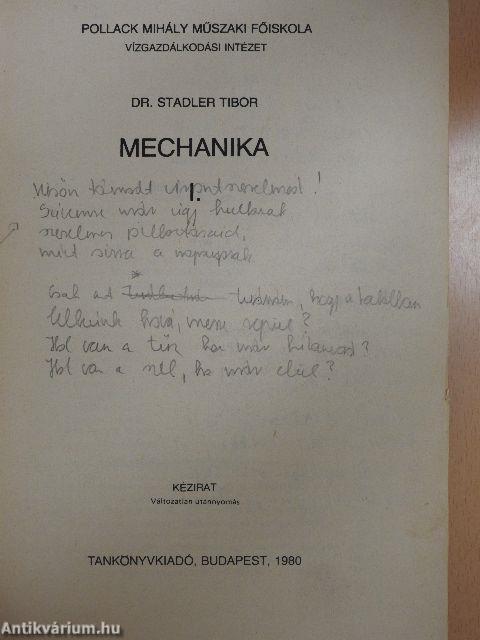 POLLACK MIHÁLY MŰSZAKI FŐISKOLA
VÍZGAZDÁLKODÁSI INTÉZET
DR. STADLER TIBOR
MECHANIKA
I.
Szívemre már úgy hullanak
szerelmes pillantásaid,
mint sírra a
Csak azt tudnám, hogy a találkan
lelkünk hová, merre repül?
Hol van a tűz ha már
Hol van a szél, ha már elül?
KÉZIRAT
Változatlan utánnyomás
TANKÖNYVKIADÓ, BUDAPEST, 1980
Antikvárium.hu